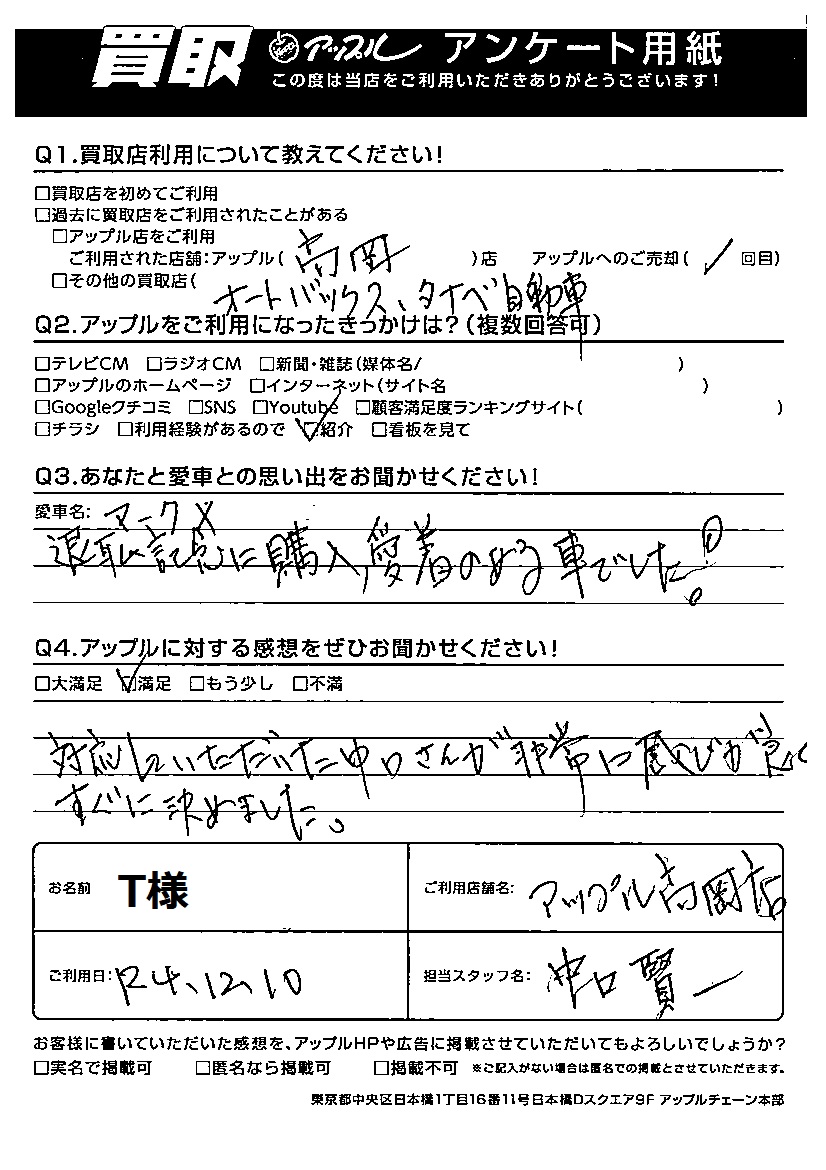 買取 アップル アンケート用紙
この度は当店をご利用いただきありがとうございます!
Q1.買取店利用について教えてください!
□買取店を初めてご利用
□過去に買取店をご利用されたことがある
□アップル店をご利用
ご利用された店舗:アップル( 高岡 )店 アップルへのご売却( ✓ 回目)
□その他の買取店( オートバックス、タナベ自動車
Q2.アップルをご利用になったきっかけは?(複数回答可)
□テレビCM □ラジオCM □新聞・雑誌(媒体名/ )
□アップルのホームページ □インターネット(サイト名 )
□Googleクチコミ □SNS □Youtube □顧客満足度ランキングサイト( )
□チラシ □利用経験があるので ☑紹介 □看板を見て
Q3.あなたと愛車との思い出をお聞かせください!
愛車名: マークX
退職記念に購入、愛着のある車でした!
Q4.アップルに対する感想をぜひお聞かせください!
□大満足 ☑満足 □もう少し □不満
対応していただいた中口さんが非常に
すぐに決めました。
お名前 T様 ご利用店舗名: アップル高岡店
ご利用日: R4、12、10 担当スタッフ名: 中口賢一
お客様に書いていただいた感想を、アップルHPや広告に掲載させていただいてもよろしいでしょうか?
□実名で掲載可 □匿名なら掲載可 □掲載不可 ※ご記入がない場合は匿名での掲載とさせていただきます。
東京都中央区日本橋1丁目16番11号日本橋Dスクエア9F アップルチェーン本部